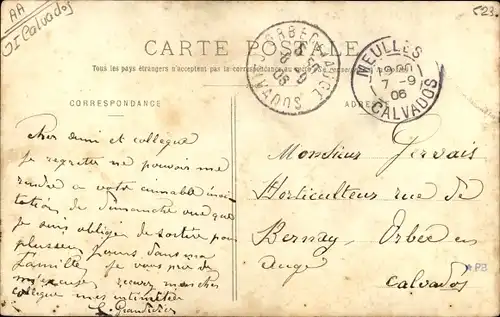 AA
OI Calvados
523
CARTE POSTALE
Tous les pays étrangers n'acceptent pas la correspondance au recto
CORRESPONDANCE
ADRESSE
ORBEC-EN-AUGE
CALVADOS
MEULLES
7 -9
06
CALVADOS
Cher ami et collegue
Je regrette ne pouvoir me
rendre a votre aimable invi
tation de dimanche vue que
je suis obligé de sortire pour
plusieur jours dans ma
Famille je vous prie de
m'excuser, recevez mon cher
collègue mes intimitées
Monsieur Gervais
Horticulteur rue de
Bernay, Orbec en
auge
Calvados
★PB